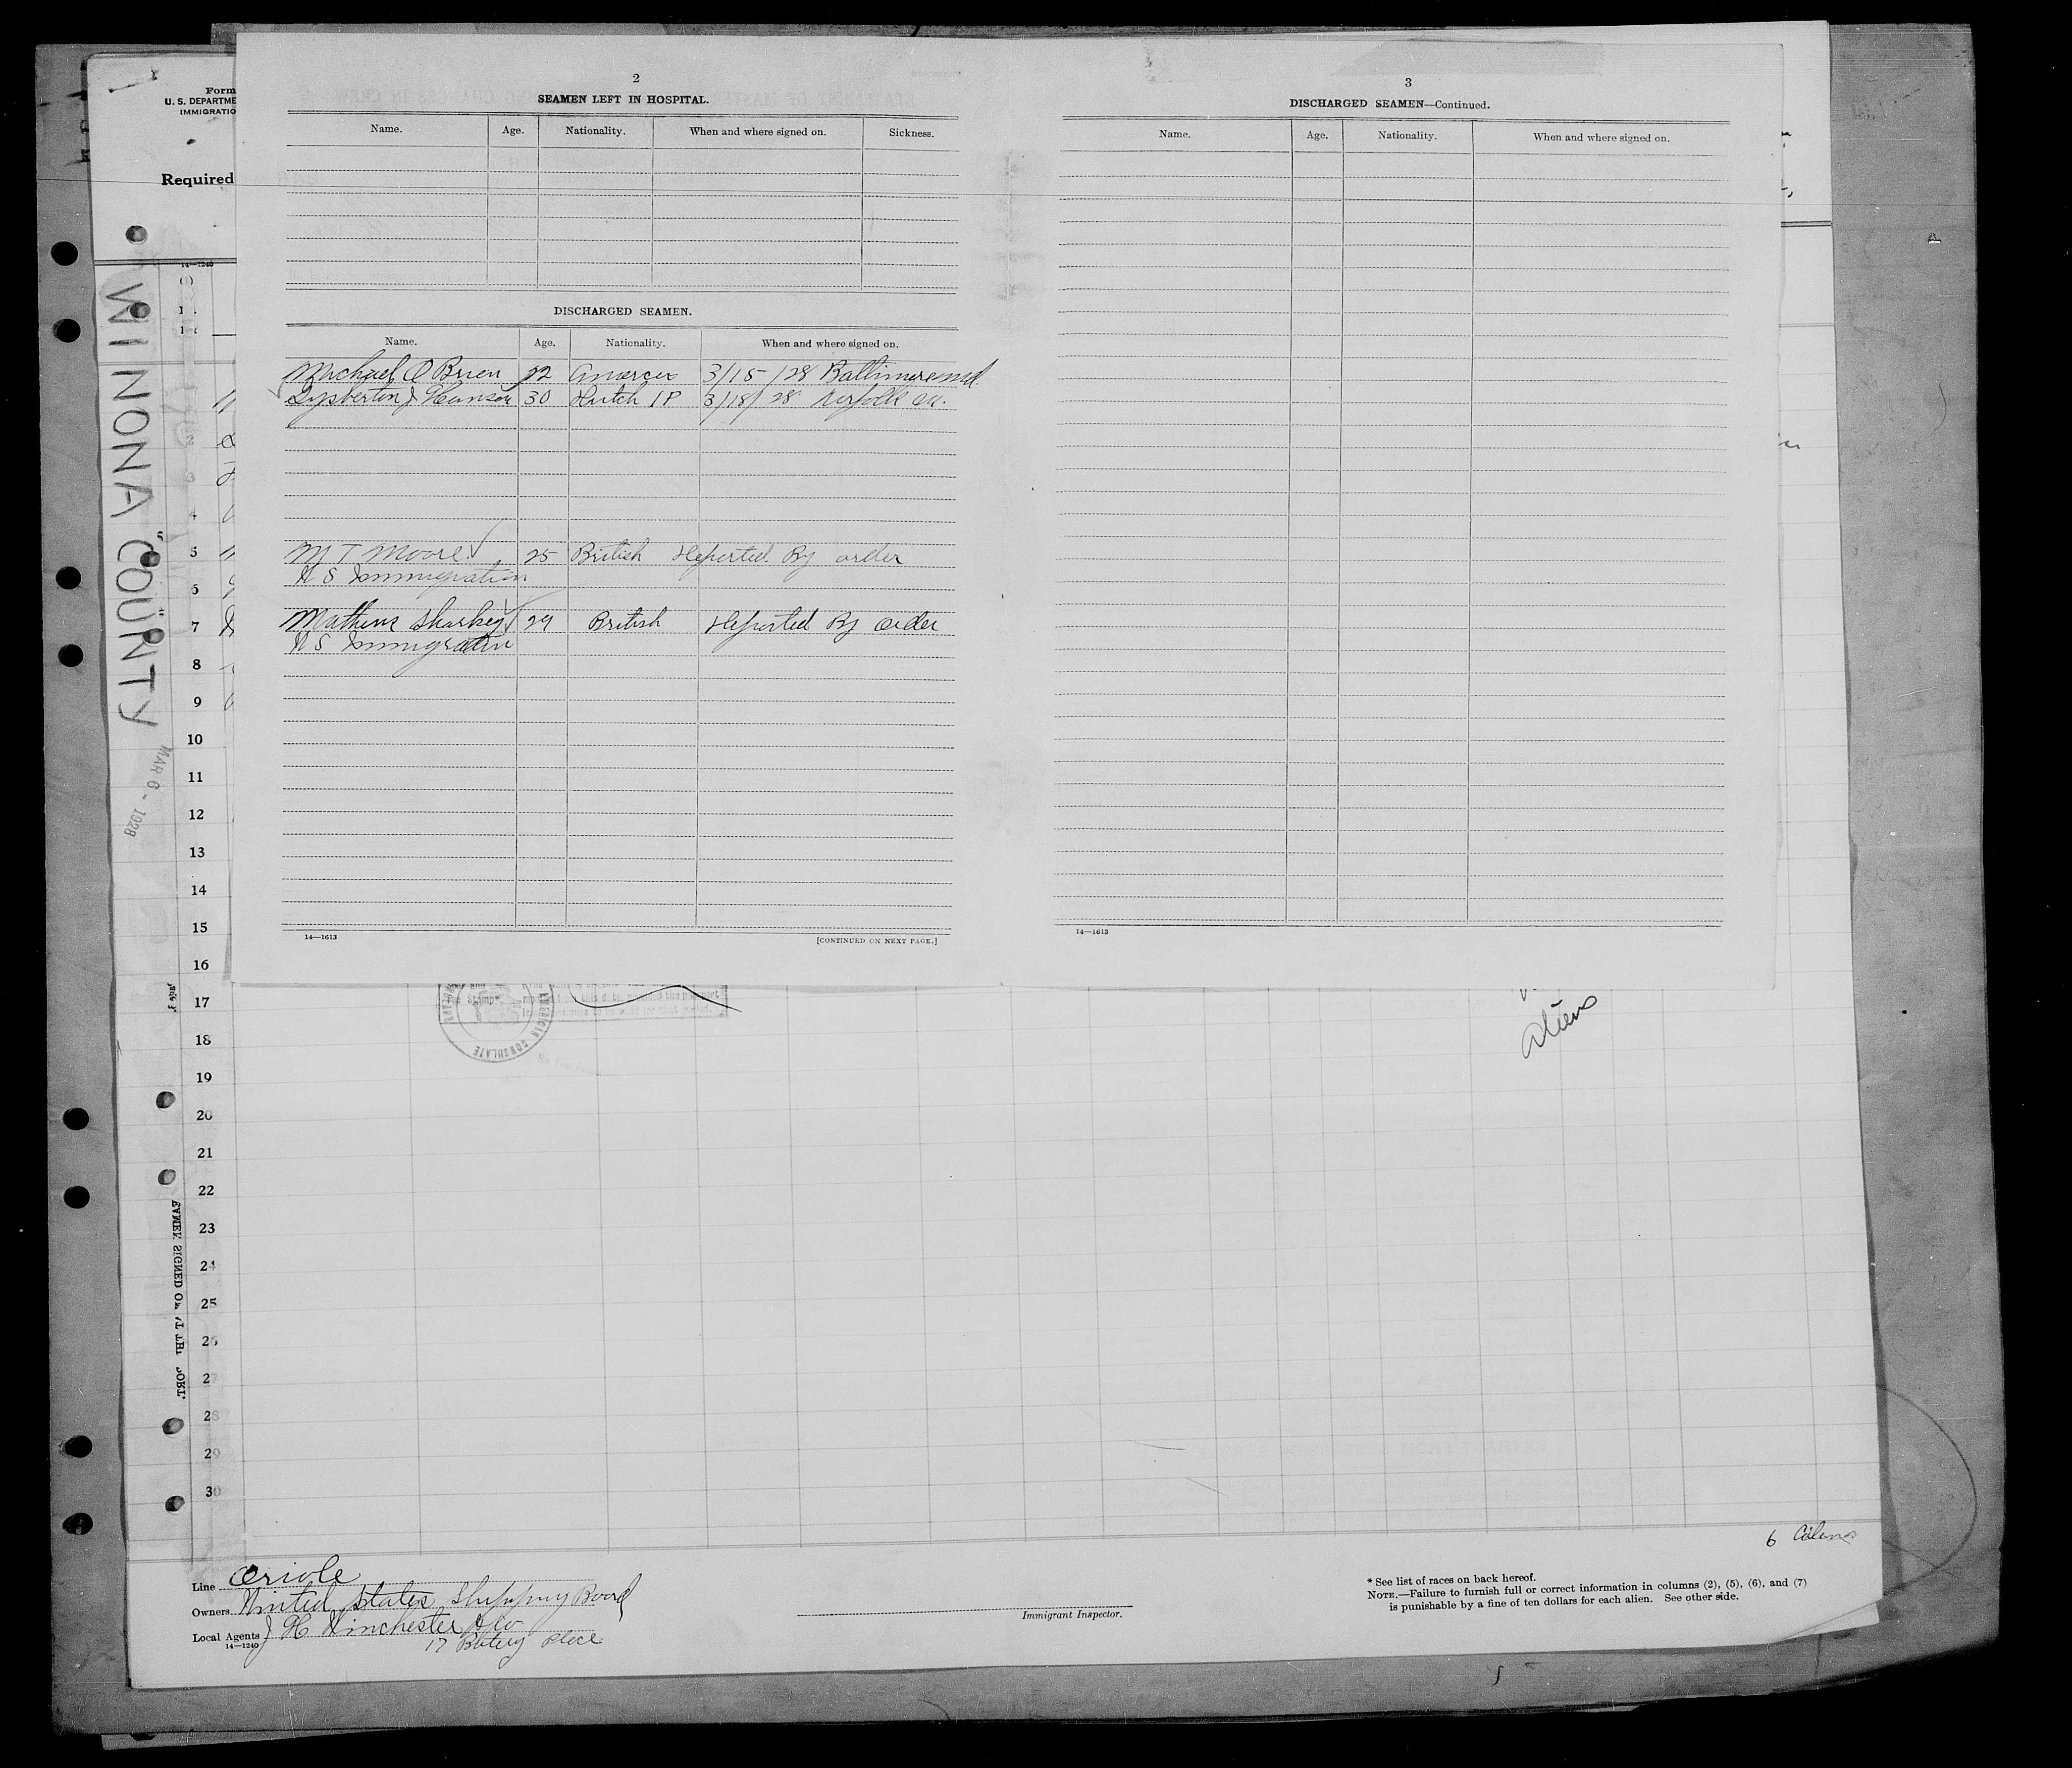 Form
U. S. DEPARTME
IMMIGRATIO
Required
14—1240
WINONA COUNTY
MAR 6 - 1928
2
SEAMEN LEFT IN HOSPITAL.
Name. Age. Nationality. When and where signed on. Sickness.
DISCHARGED SEAMEN.
Name. Age. Nationality. When and where signed on.
Michael O Brien 22 3/15/28 Baltimore md.
30 3/18/28 Norfolk
M T Moore 25 British Deported By order
U S Immigration
Sharkey 29 British Deported By order
U S Immigration
14—1613
[CONTINUED ON NEXT PAGE.]
3
DISCHARGED SEAMEN—Continued.
Name. Age. Nationality. When and where signed on.
14—1613
3
4
5
6
7
8
9
10
11
12
13
14
15
16
17
18
19
20
21
22
23
24
25
26
27
28
29
30
AMERICAN CONSULATE
aliens
6 aliens
Line Oriole
Owners United States Shipping Board
Local Agents J H Winchester & Co
14—1240
17 Battery Place
Immigrant Inspector.
* See list of races on back hereof.
NOTE.—Failure to furnish full or correct information in columns (2), (5), (6), and (7)
is punishable by a fine of ten dollars for each alien. See other side.